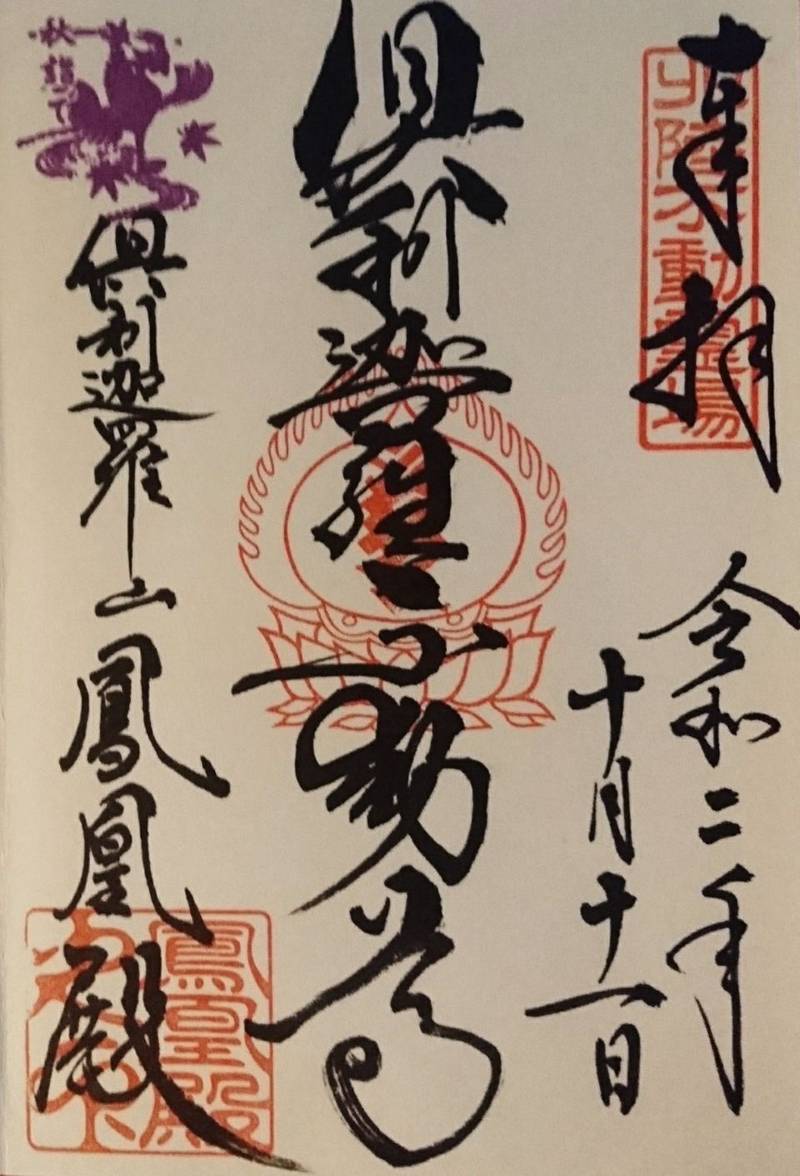 奉拝
北陸不動霊場
令和二年
十月十一日
俱利迦羅不動尊
秋詣で
俱利迦羅山鳳凰殿
鳳凰殿